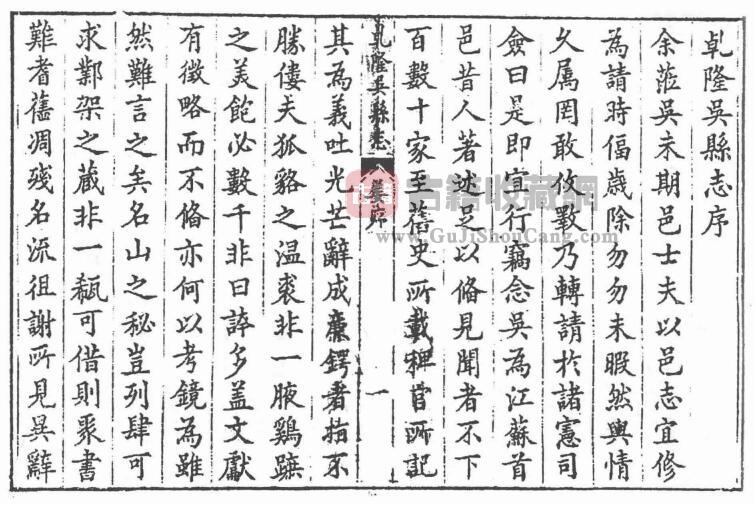 乹隆吳縣志序
余蒞吳未期邑士夫以邑志宜修
為請時偪歲除勿勿未暇然輿情
久属罔敢攸斁乃轉請於諸憲司
僉曰是即宜行竊念吳為江蘇首
邑昔人著述足以俻見聞者不下
百數十家至舊史所載稗官所記
乹隆吳縣志
序
一
其為義吐光芒辭成廉鍔者指不
勝僂夫狐貉之温裘非一腋鷄蹠
之美飽必數千非曰誇多盖文獻
有徵略而不俻亦何以考鏡為雖
然難言之矣名山之秘豈列肆可
求鄴架之蔵非一瓻可借則聚書
難者舊凋殘名流徂謝所見異辭
古籍收藏網
www.GuJiShouCang.com